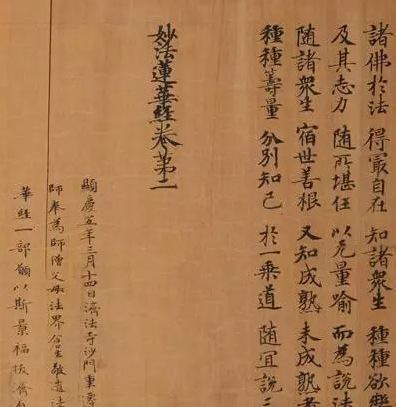 諸佛於法 得冣自在 知諸衆生 種種欲樂
及其志力 随所堪任 以无量喻 而為說法
随諸衆生 宿世善根 又知成熟 未成熟者
種種籌量 分別知已 於一乗道 随宜說三
妙法蓮華經卷第二
顯慶五年三月十四日濟法寺沙門重
師奉為師僧父母法界含生敬造法
華經一部願以斯景福拔濟有